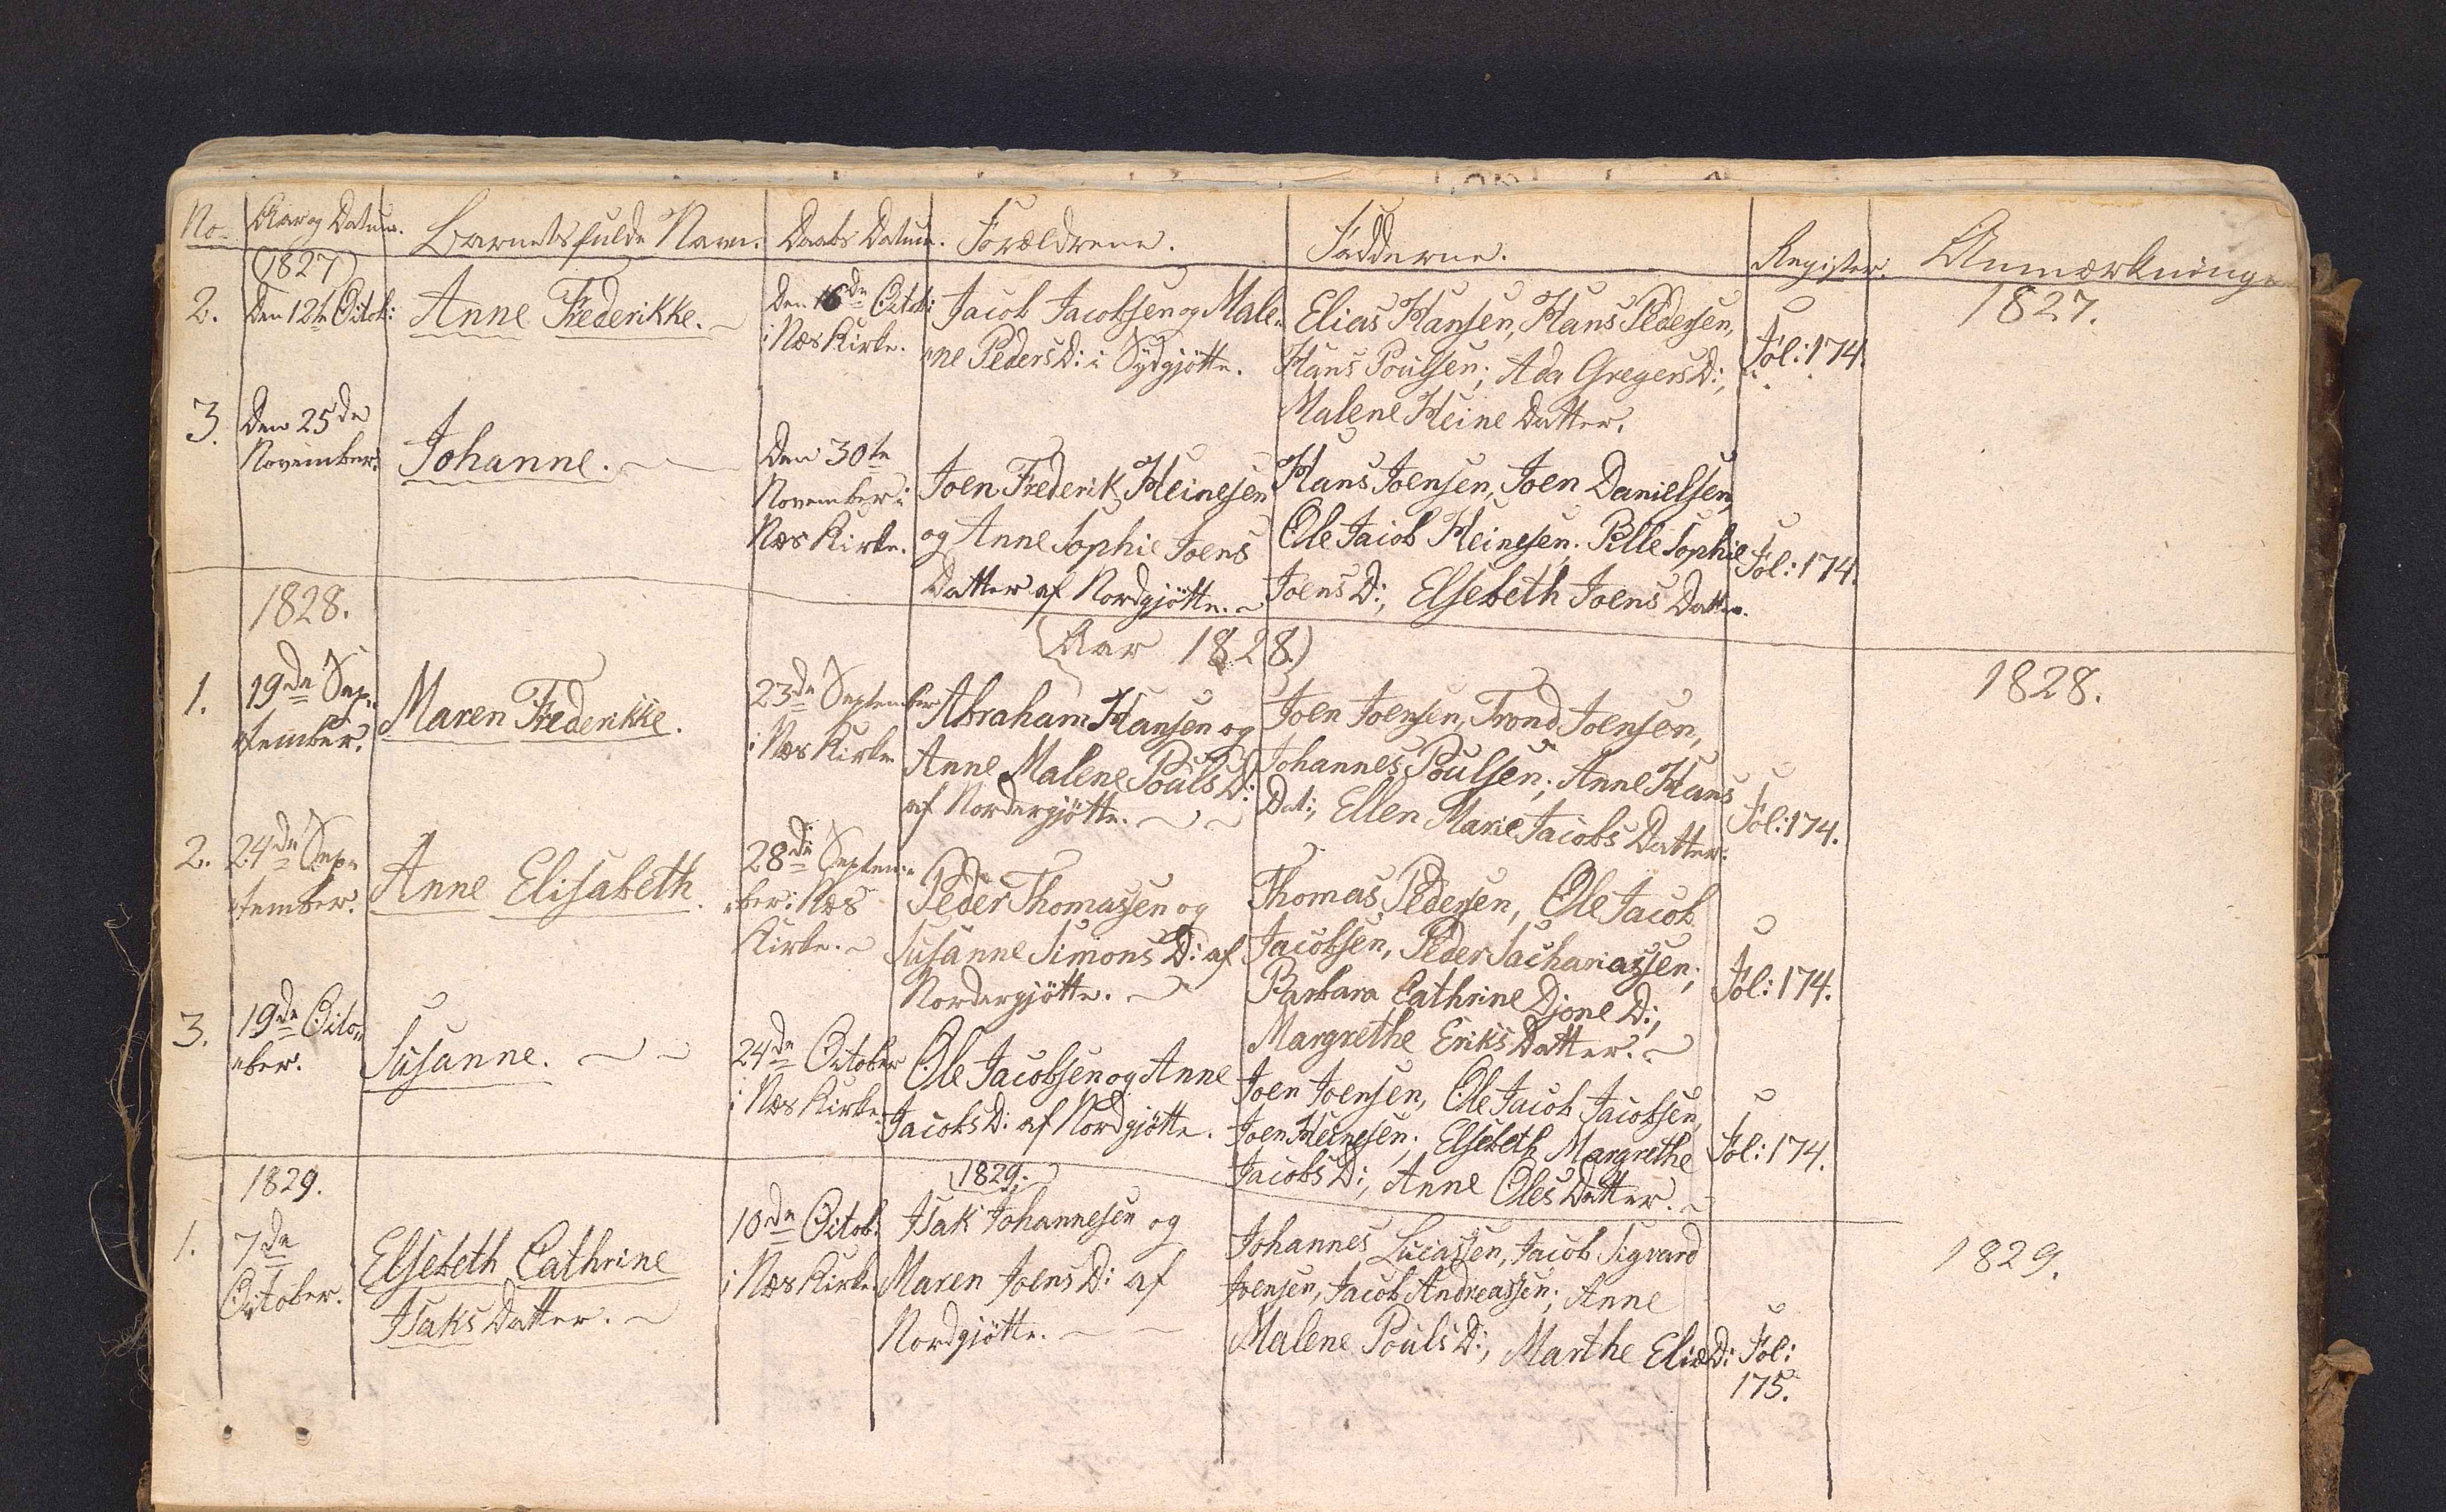 No. Aar og Datum. Barnets fulde Navn. Daabs Datum. Forældrene. Fadderne. Register. Anmærkninge
(1827)
2. Den 12te Octob: Anne Frederikke. Den 16de Octob: Jacob Jacobsen og Male- Elias Hansen, Hans Pedersen, 1827.
i Næs Kirke. ne PedersD: i Sydgjötte. Hans Poulsen; Ada GregersD:, Fol: 174.
Malene Heine Datter.
3. Den 25de Johanne. Den 30te Joen Frederik Heinesen Hans Joensen, Joen Danielsen,
November. November i og Anne Sophie Joens Ole Jacob Heinesen. Pille Sophie Fol: 174.
Næs Kirke. Datter af Nordgjötte. Joens D:, Elsebeth Joens Datter.
1828. (Aar 1828.) 1828.
1. 19de Sep- Maren Frederikke. 23de September Abraham Hansen og Joen Joensen, Trond Joensen,
tember. i Næs Kirke Anne Malene Pouls D: Johannes Poulsen; Anne Hans
af Nordergjötte. Dat:, Ellen Marie Jacobs Datter. Fol: 174.
2. 24de Sep- Anne Elisabeth. 28de Septem- Peder Thomassen og Thomas Pedersen, Ole Jacob
tember. ber i Næs Susanne Simons D: af Jacobsen, Peder Sachariassen;
Kirke. Nordergjötte. Barbara Cathrine Djone D:, Fol: 174.
Margrethe Eriks Datter.
3. 19de Octo- Susanne. 24de October Ole Jacobsen og Anne Joen Joensen, Ole Jacob Jacobsen,
ber. i Næs Kirke. Jacobs D: af Nordgjötte. Joen Heinesen; Elsebeth Margrethe Fol: 174.
Jacobs D:, Anne Oles Datter.
1829. 1829. 1829.
1. 7de Elsebeth Cathrine 10de Octob. Isak Johannesen og Johannes Lucassen, Jacob Sigvard
October. Isaks Datter. i Næs Kirke Maren Joens D: af Joensen, Jacob Andreassen; Anne
Nordgjötte. Malene Pouls D:, Marthe Elia D: Fol:
175.